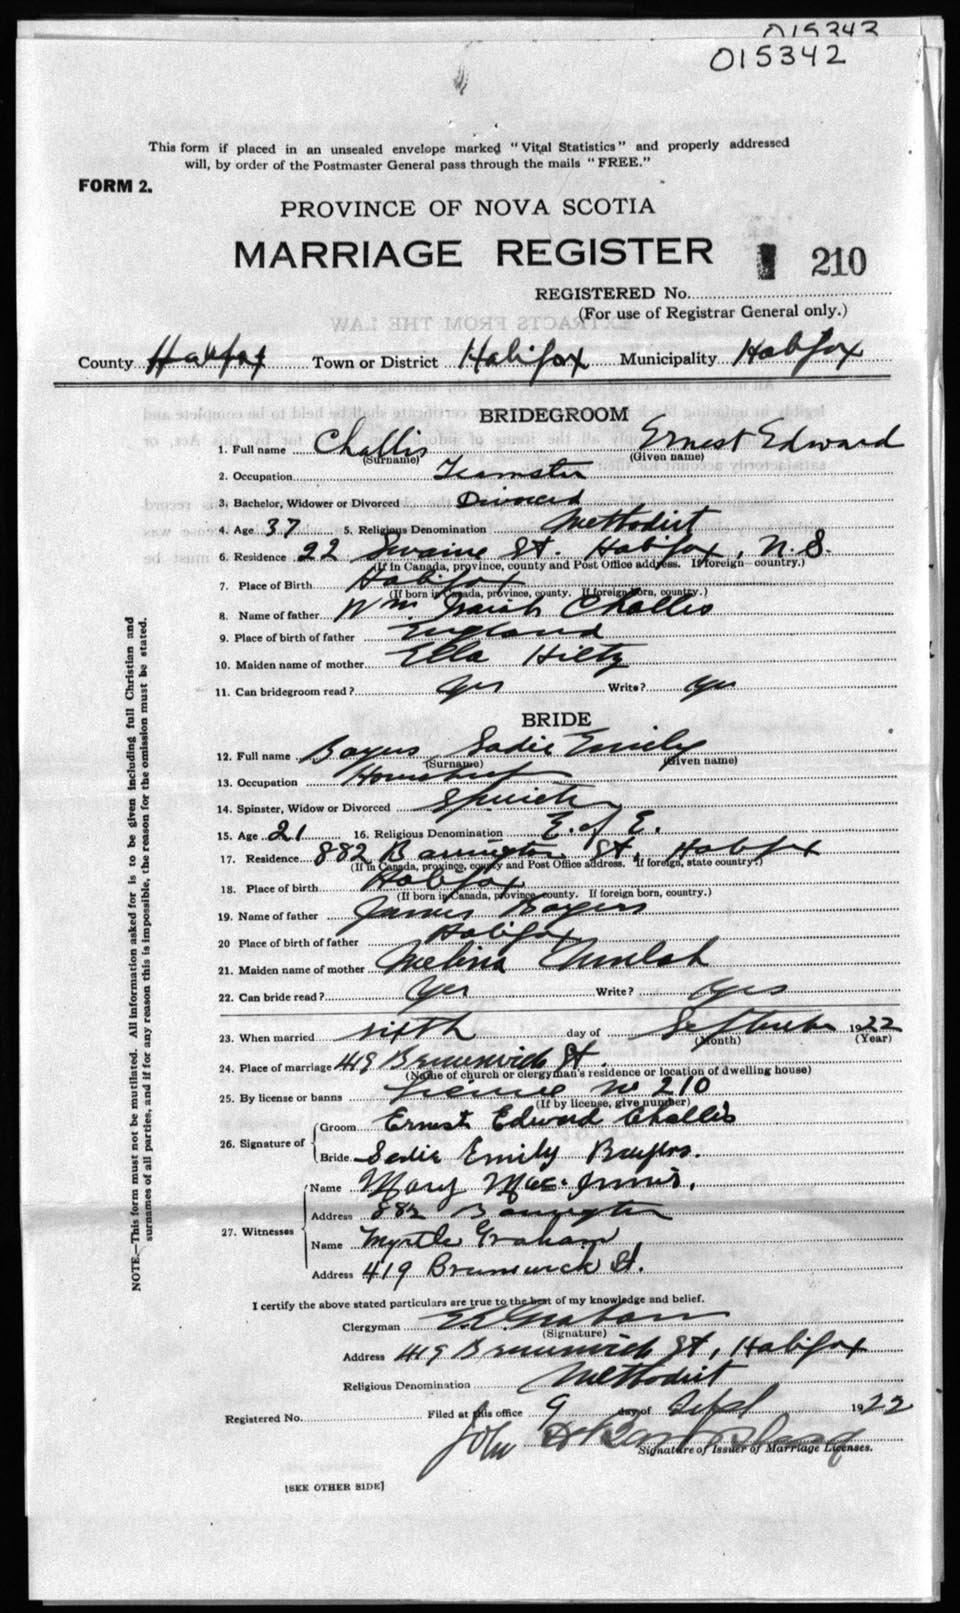 015343
015342
This form if placed in an unsealed envelope marked "Vital Statistics" and properly addressed
will, by order of the Postmaster General pass through the mails "FREE."
FORM 2.
PROVINCE OF NOVA SCOTIA
MARRIAGE REGISTER
210
REGISTERED No.
(For use of Registrar General only.)
County Halifax Town or District Halifax Municipality Halifax
BRIDEGROOM
1. Full name Challis Ernest Edward
(Surname) (Given name)
2. Occupation Teamster
3. Bachelor, Widower or Divorced Divorced
4. Age 37 5. Religious Denomination Methodist
6. Residence 22 Swaine St. Halifax, N.S.
(If in Canada, province, county and Post Office address. If foreign country.)
7. Place of Birth Halifax
(If born in Canada, province, county. If foreign born, country.)
8. Name of father Wm. Isaiah Challis
9. Place of birth of father England
10. Maiden name of mother Ella Hiltz
11. Can bridegroom read? Yes Write? Yes
BRIDE
12. Full name Bayers Sadie Emily
(Surname) (Given name)
13. Occupation
14. Spinster, Widow or Divorced Spinster
15. Age 21 16. Religious Denomination E. of E.
17. Residence 882 Barrington St, Halifax
(If in Canada, province, county and Post Office address. If foreign, state country.)
18. Place of birth Halifax
(If born in Canada, province, county. If foreign born, country.)
19. Name of father James Bayers
20 Place of birth of father Halifax
21. Maiden name of mother Melina
22. Can bride read? Yes Write? Yes
23. When married sixth day of September 1922
(Month) (Year)
24. Place of marriage 419 Brunswick St.
(Name of church or clergyman's residence or location of dwelling house)
25. By license or banns License No 210
(If by license, give number)
26. Signature of Groom Ernest Edward Challis
Bride Sadie Emily Bayers.
27. Witnesses Name Mary MacInnis.
Address 882 Barrington
Name Myrtle Graham
Address 419 Brunswick St.
I certify the above stated particulars are true to the best of my knowledge and belief.
Clergyman Graham
(Signature)
Address 419 Brunswick St, Halifax
Religious Denomination Methodist
Registered No. Filed at this office 9 day of Sept 1922
John
Signature of Issuer of Marriage Licenses.
[SEE OTHER SIDE]
NOTE.—This form must not be mutilated. All information asked for is to be given including full Christian and
surnames of all parties, and if for any reason this is impossible, the reason for the omission must be stated.